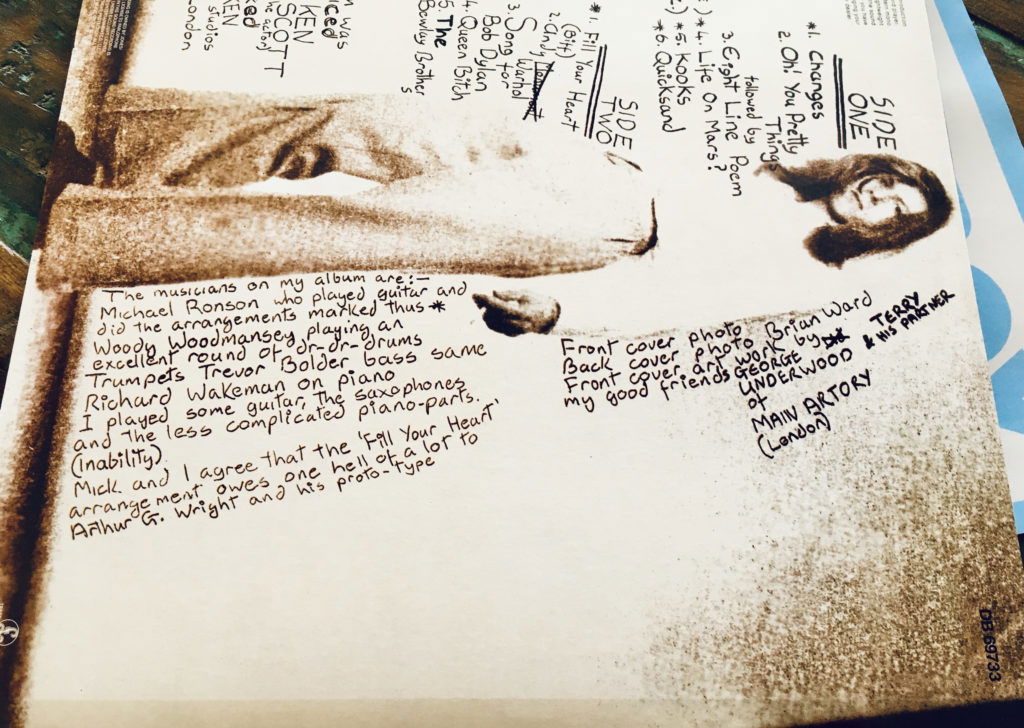 SIDE
ONE
*1. Changes
2. Oh! You Pretty
Things
followed by
3. Eight Line Poem
*4. Life On Mars?
*5. Kooks
*6. Quicksand
SIDE
TWO
*1. Fill Your Heart
(Biff)
2. Andy
Warhol
3. Song for
Bob Dylan
4. Queen Bitch
5. The
Bewlay Brother
s
was
KEN
SCOTT
studios
London
The musicians on my album are:-
Michael Ronson who played guitar and
did the arrangements marked thus *
Woody Woodmansey playing an
excellent round of dr-dr-drums
Trumpets Trevor Bolder bass same
Richard Wakeman on piano
I played some guitar, the saxophones
and the less complicated piano-parts.
(inability)
Mick and I agree that the 'Fill Your Heart'
arrangement owes one hell of a lot to
Arthur G. Wright and his proto-type
Front cover photo
Back cover photo Brian Ward
Front cover art work by TERRY
my good friends GEORGE & HIS PARTNER
UNDERWOOD
of
MAIN ARTORY
(London)
DB 69733